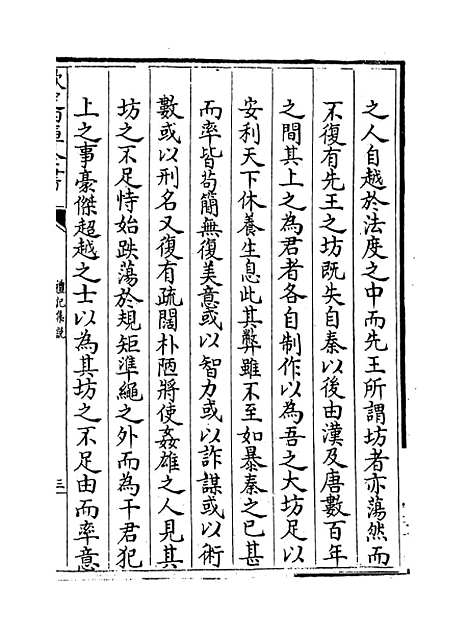 之人自越於法度之中而先王所謂坊者亦蕩然而
不復有先王之坊既失自秦以後由漢及唐數百年
之間其上之為君者各自制作以為吾之大坊足以
安利天下休養生息此其弊雖不至如暴秦之已甚
而率皆苟簡無復美意或以智力或以詐謀或以術
數或以刑名又復有疏闊朴陋將使姦雄之人見其
坊之不足恃始跌蕩於規矩準繩之外而為干君犯
上之事豪傑超越之士以為其坊之不足由而率意
欽定四庫全書
禮記集説
三